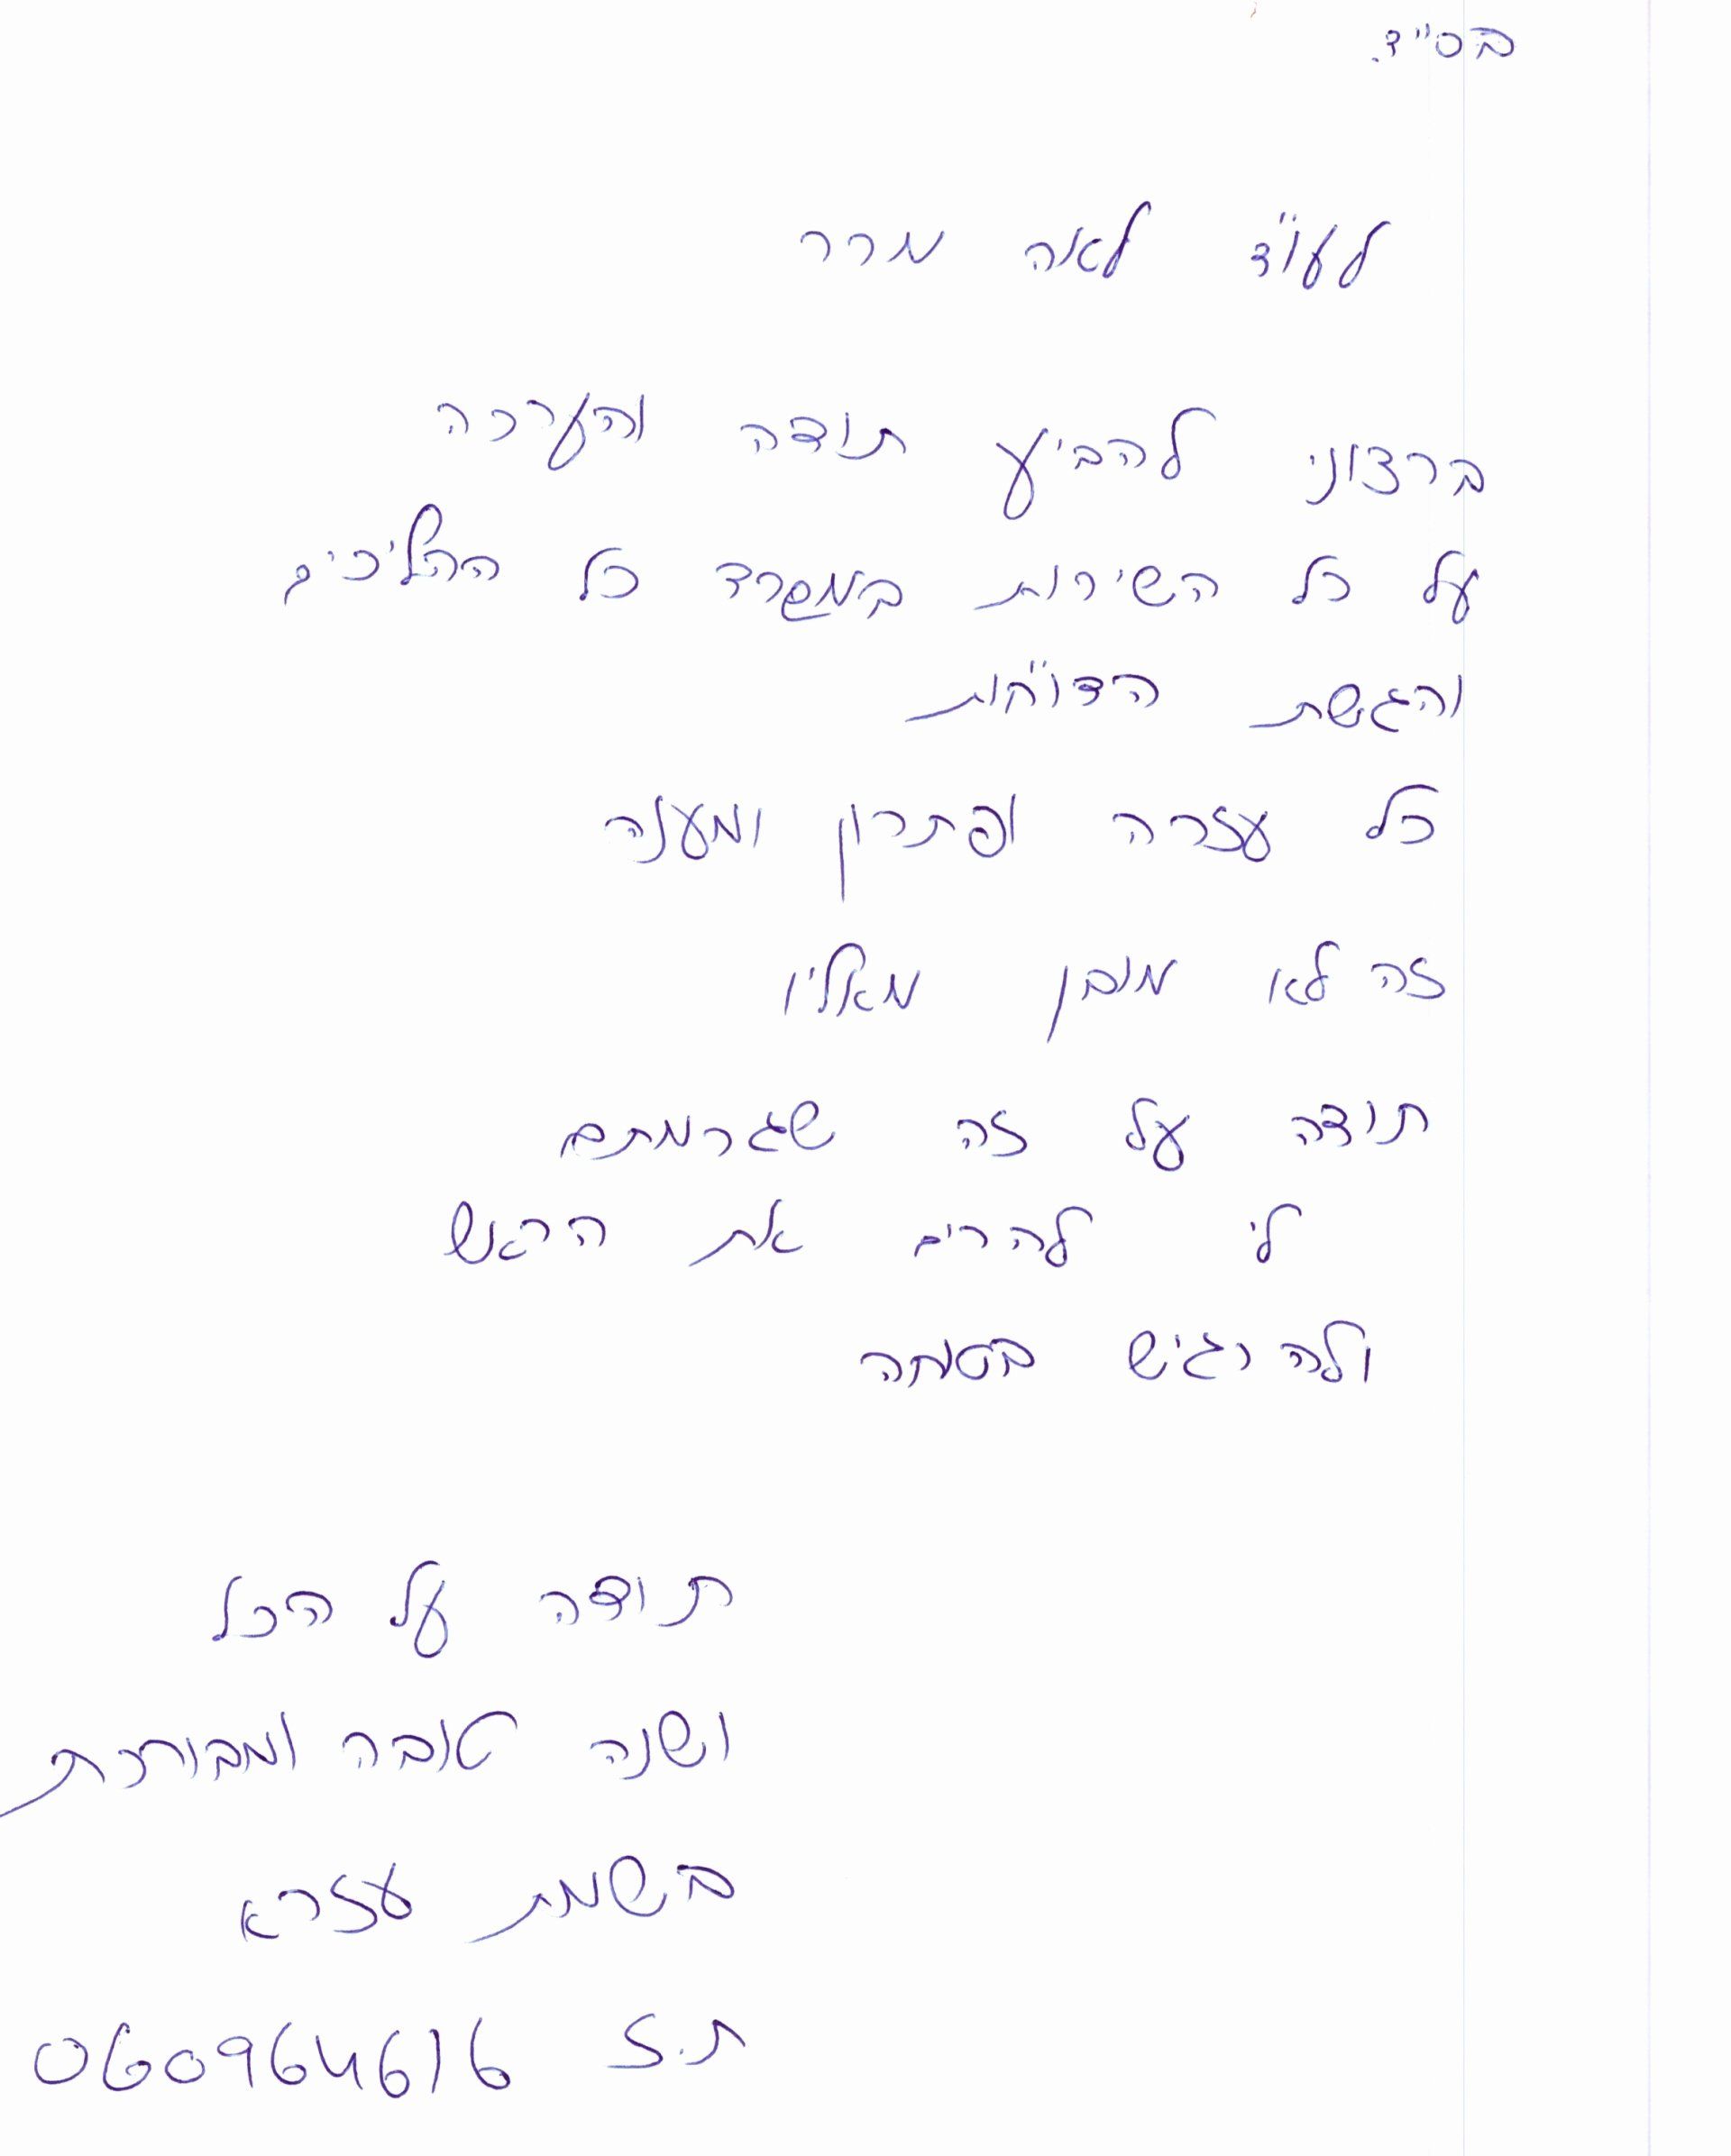 בס"ד
לעו"ד לאה מרר
ברצוני להביע תודה והערכה
על כל השירות במשרד כל ההליכים
והגשת הדו"חות
כל עזרה ופתרון ומענה
זה לא מובן מאליו
תודה על זה שגרמתם
לי להרים את הראש
ולהרגיש בטוחה
תודה על הכל
ושנה טובה ומבורכת
בשמת עזרא
ת.ז 060964616